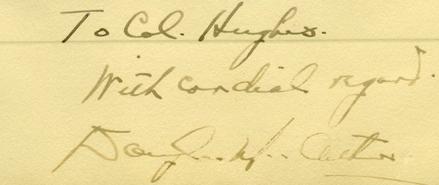 To Col. Hughes.
With cordial regard.
Douglas MacArthur